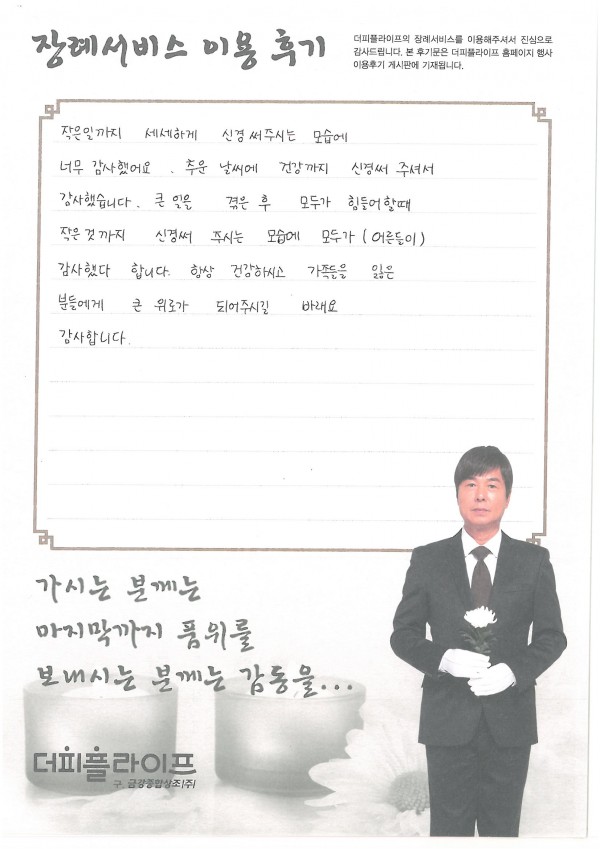 장례서비스 이용 후기
더피플라이프의 장례서비스를 이용해주셔서 진심으로
감사드립니다. 본 후기문은 더피플라이프 홈페이지 행사
이용후기 게시판에 기재됩니다.
작은일까지 세세하게 신경써주시는 모습에
너무 감사했어요. 추운 날씨에 건강까지 신경써 주셔서
감사했습니다. 큰 일을 겪은 후 모두가 힘들어할때
작은것까지 신경써 주시는 모습에 모두가(어른들이)
감사했다 합니다. 항상 건강하시고 가족들을 잃은
분들에게 큰 위로가 되어주시길 바래요
감사합니다.
가시는 분께는
마지막까지 품위를
보내시는 분께는 감동을...
더피플라이프
구. 금강종합상조(주)